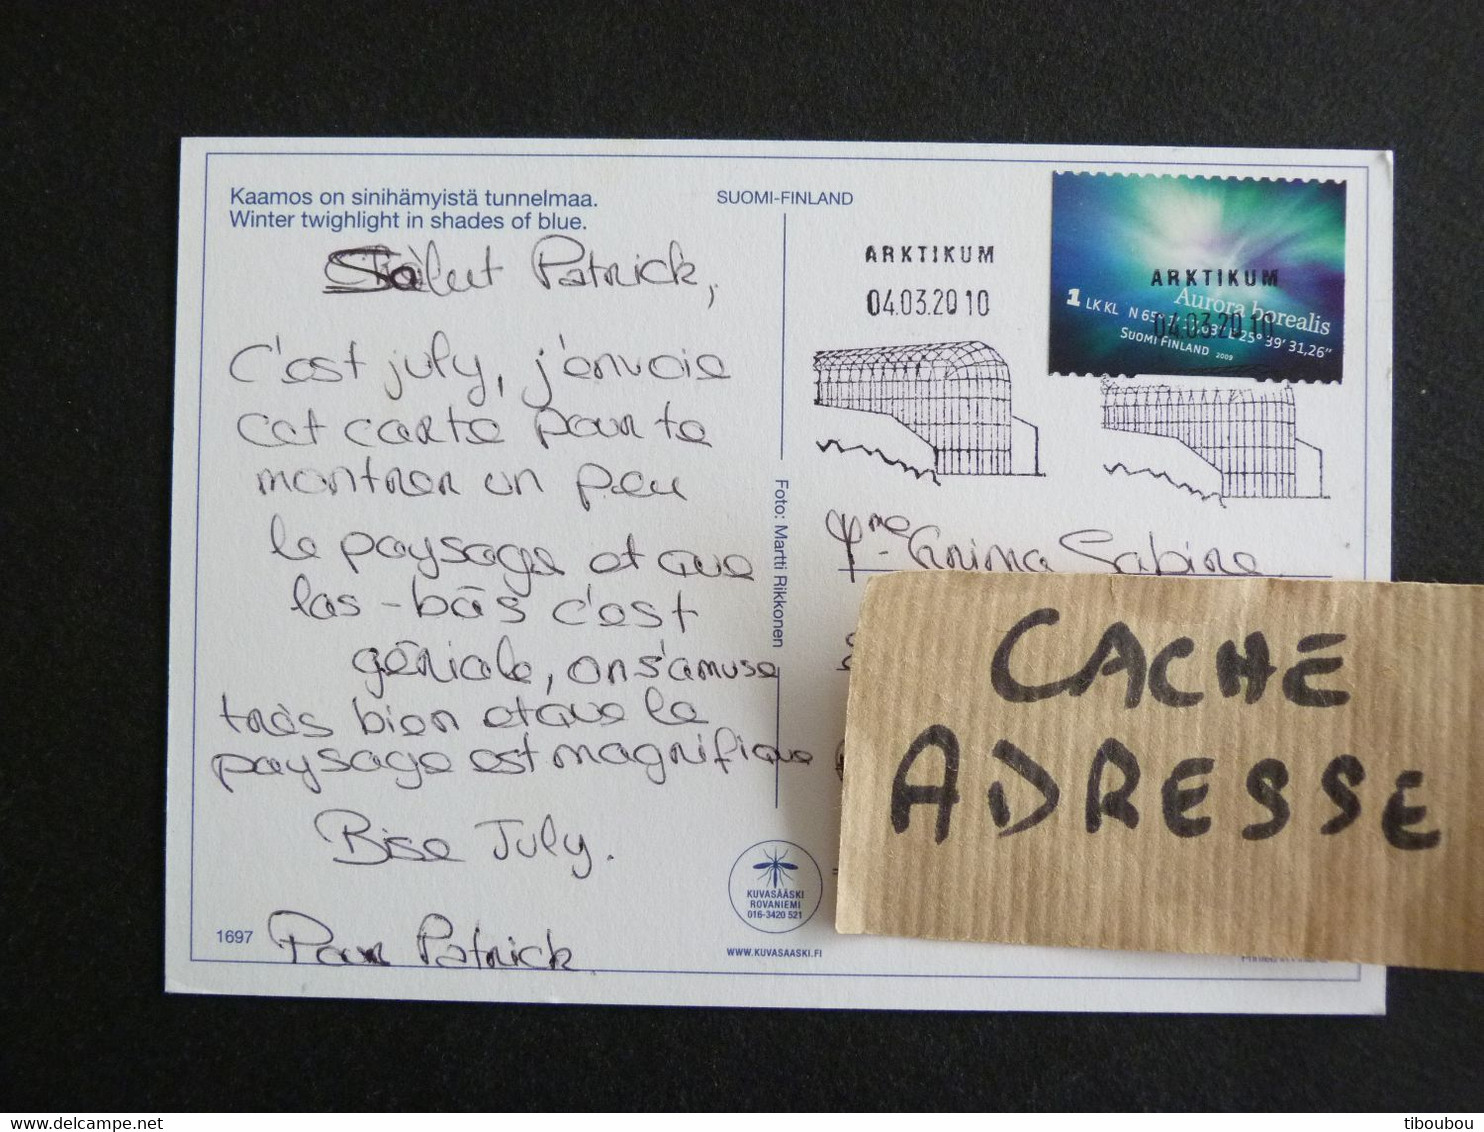 Kaamos on sinihämyistä tunnelmaa.
Winter twighlight in shades of blue.
SUOMI-FINLAND
Salut Patrick,
C'est july, j'envoie
cet carte pour te
montrer un peu
le paysage et que
las-bàs c'est
géniale, on s'amuse
très bien et que le
paysage est magnifique
Bise July.
Pour Patrick
1697
Foto: Martti Rikkonen
KUVASÄÄSKI
ROVANIEMI
016-3420 521
WWW.KUVASAASKI.FI
ARKTIKUM
04.03.2010
ARKTIKUM
04.03.2010
Aurora borealis
1 LK KL N 65° E 25° 39' 31,26"
SUOMI FINLAND 2009
Sabine
CACHE
ADRESSE
tiboubou